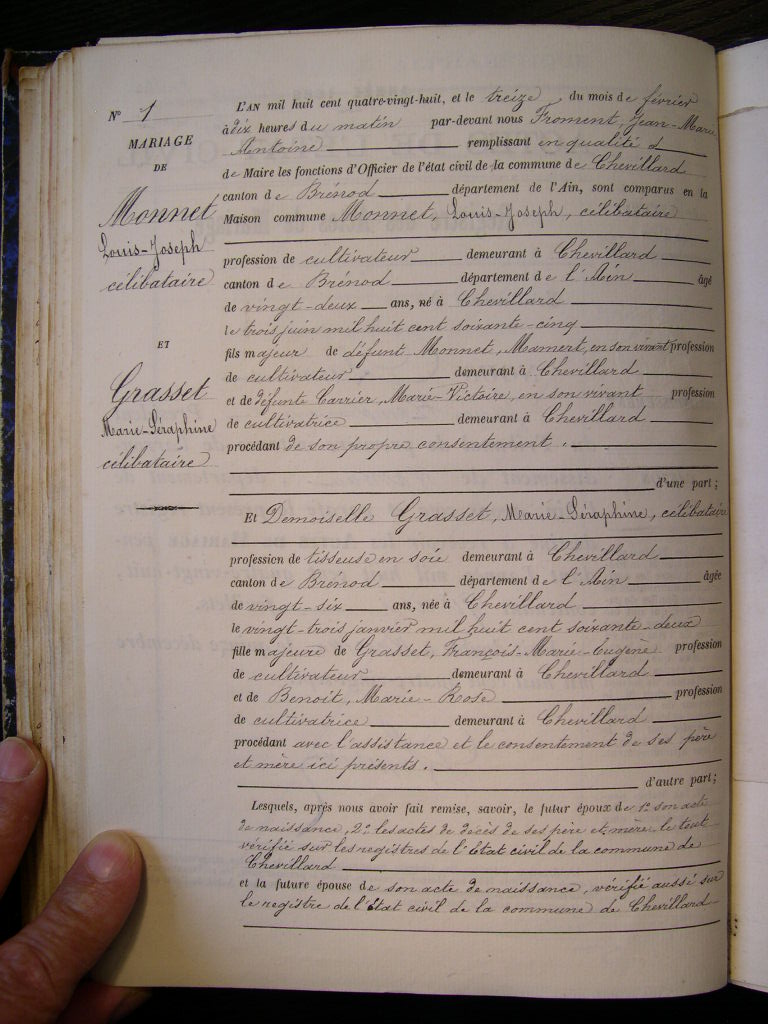 N° 1
MARIAGE
DE
Monnet
Louis-Joseph
célibataire
ET
Grasset
Marie-Séraphine
célibataire
L'AN mil huit cent quatre-vingt-huit, et le treize du mois de février
à dix heures du matin par-devant nous Froment, Jean-Marie
Antoine remplissant en qualité d
de Maire les fonctions d'Officier de l'état civil de la commune de Chevillard
canton de Brénod département de l'Ain, sont comparus en la
Maison commune Monnet, Louis-Joseph, célibataire
profession de cultivateur demeurant à Chevillard
canton de Brénod département de l'Ain âgé
de vingt-deux ans, né à Chevillard
le trois juin mil huit cent soixante-cinq
fils majeur de défunt Monnet, Mamert, en son vivant profession
de cultivateur demeurant à Chevillard
et de défunte Carrier, Marie-Victoire, en son vivant profession
de cultivatrice demeurant à Chevillard
procédant de son propre consentement.
d'une part;
Et Demoiselle Grasset, Marie-Séraphine, célibataire
profession de tisseuse en soie demeurant à Chevillard
canton de Brénod département de l'Ain âgée
de vingt-six ans, née à Chevillard
le vingt-trois janvier mil huit cent soixante-deux
fille majeure de Grasset, François-Marie-Eugène profession
de cultivateur demeurant à Chevillard
et de Benoit, Marie-Rose profession
de cultivatrice demeurant à Chevillard
procédant avec l'assistance et le consentement de ses père
et mère ici présents.
d'autre part;
Lesquels, après nous avoir fait remise, savoir, le futur époux de 1° son acte
de naissance, 2° les actes de décès de ses père et mère, le tout
vérifié sur les registres de l'État civil de la commune de
Chevillard
et la future épouse de son acte de naissance, vérifié aussi sur
le registre de l'état civil de la commune de Chevillard